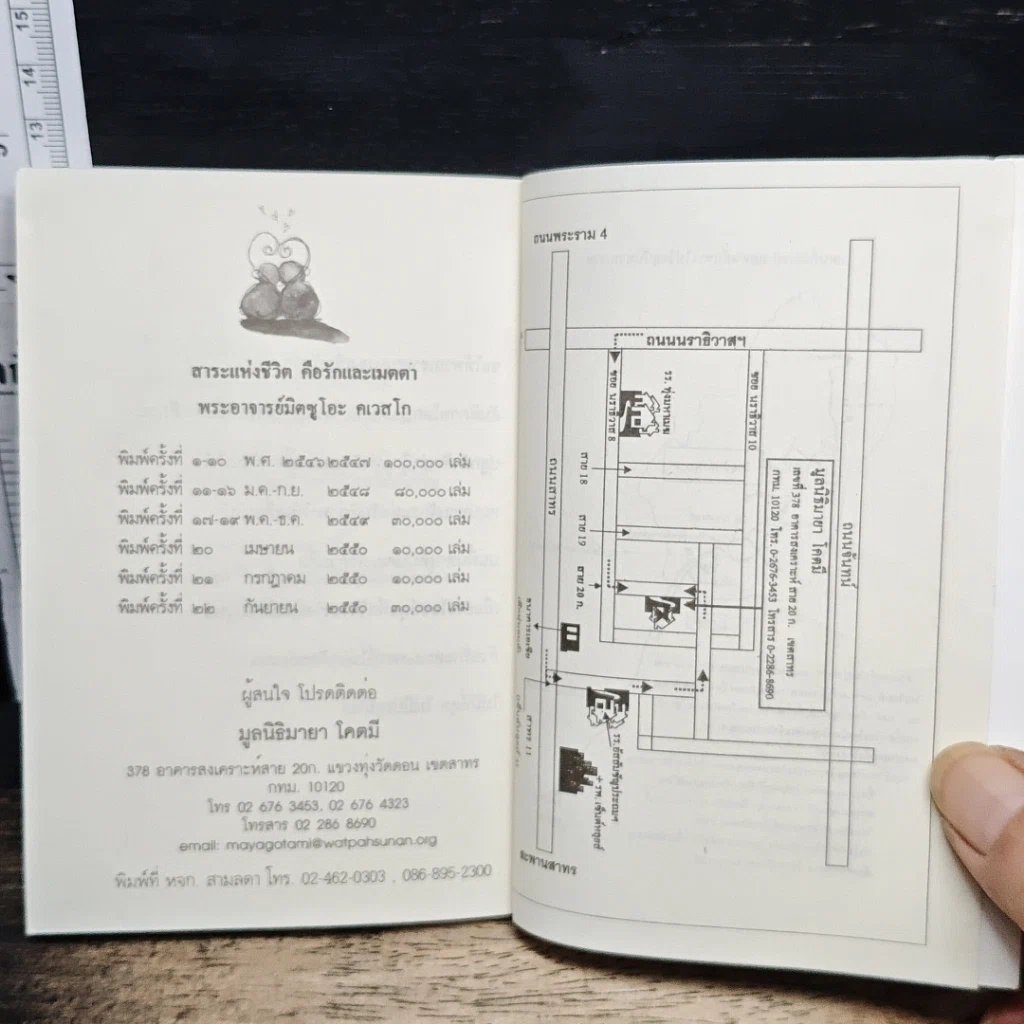 สาระแห่งชีวิต คือรักและเมตตา
พระอาจารย์มิตซูโอะ คเวสโก
พิมพ์ครั้งที่ ๑-๑๐ พ.ศ. ๒๕๔๖๒๕๔๗ ๑๐๐,๐๐๐ เล่ม
พิมพ์ครั้งที่ ๑๑-๑๖ ม.ค.-ก.ย. ๒๕๔๘ ๘๐,๐๐๐ เล่ม
พิมพ์ครั้งที่ ๑๗-๑๙ พ.ค.-ธ.ค. ๒๕๔๙ ๓๐,๐๐๐ เล่ม
พิมพ์ครั้งที่ ๒๐ เมษายน ๒๕๕๐ ๑๐,๐๐๐ เล่ม
พิมพ์ครั้งที่ ๒๑ กรกฎาคม ๒๕๕๐ ๑๐,๐๐๐ เล่ม
พิมพ์ครั้งที่ ๒๒ กันยายน ๒๕๕๐ ๓๐,๐๐๐ เล่ม
ผู้สนใจ โปรดติดต่อ
มูลนิธิมายา โคตมี
378 อาคารสงเคราะห์สาย 20ก. แขวงทุ่งวัดดอน เขตสาทร
กทม. 10120
โทร 02 676 3453, 02 676 4323
โทรสาร 02 286 8690
email: mayagotami@watpahsunan.org
พิมพ์ที่ หจก. สามลดา โทร. 02-462-0303 , 086-895-2300
ถนนพระราม 4
ถนนนราธิวาสฯ
ซอย นราธิวาส 8
รร. ทุ่งมหาเมฆ
ซอย นราธิวาส 10
ถนนสาทร
สาย 18
สาย 19
สาย 20 ก.
มูลนิธิมายา โคตมี
เลขที่ 378 อาคารสงเคราะห์ สาย 20 ก. เขตสาทร
กทม. 10120 โทร. 0-2676-3453 โทรสาร 0-2286-8690
ถนนจันทน์
ธนาคารเอเชีย
สาทร 11
รร.อัสสัมชัญประถมฯ
+ รพ. เซ็นต์หลุยส์
สะพานสาทร
13
14
15